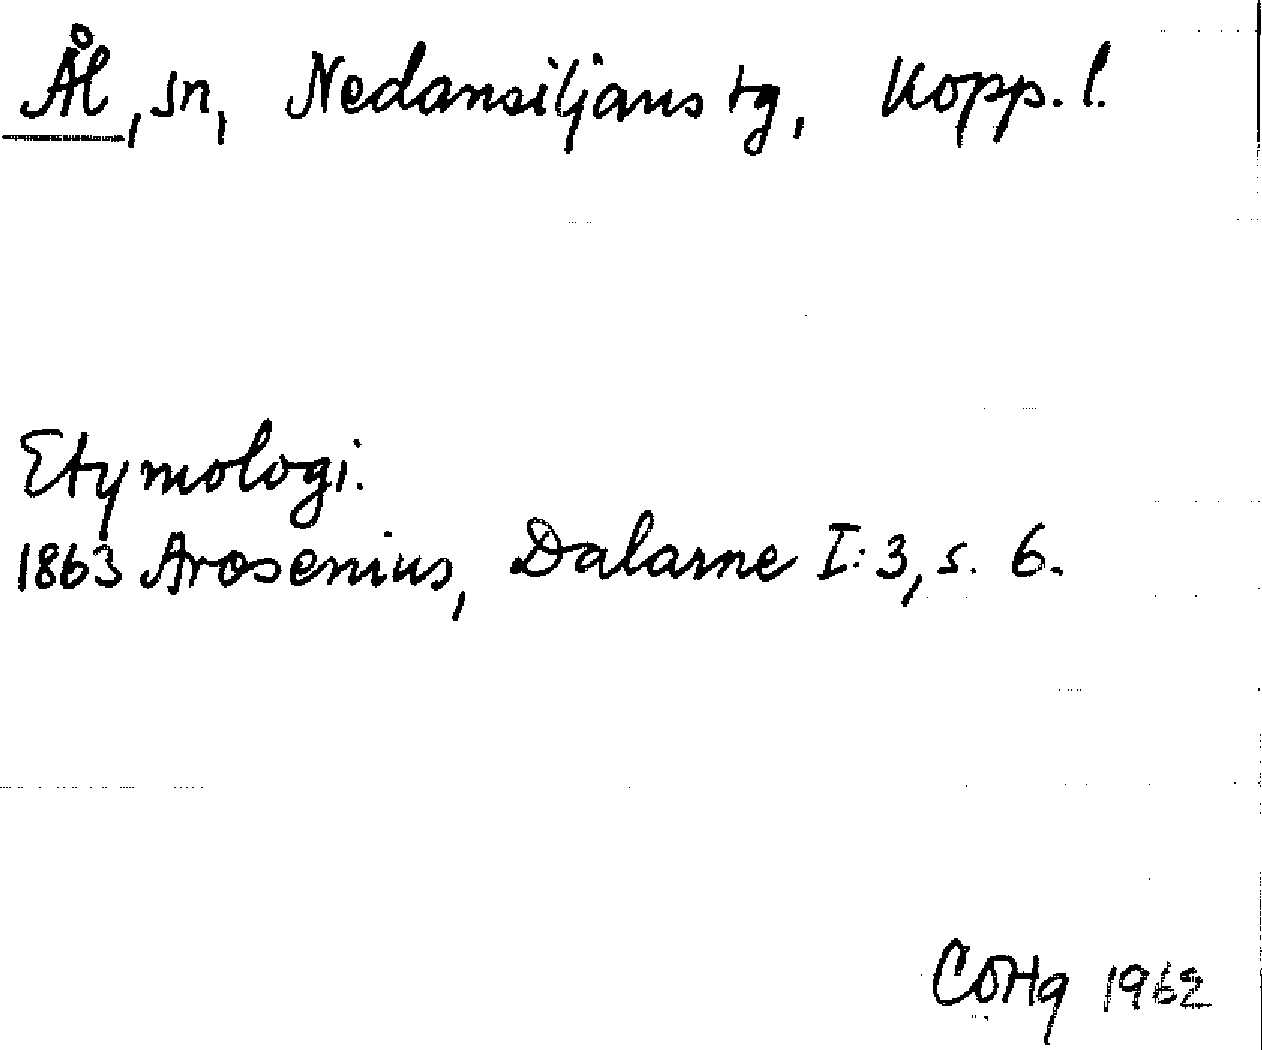 Ål, sn, Nedansiljans tg, Kopp. l.
Etymologi.
1863 Arosenius, Dalarne I:3, s. 6.
COHq 1962